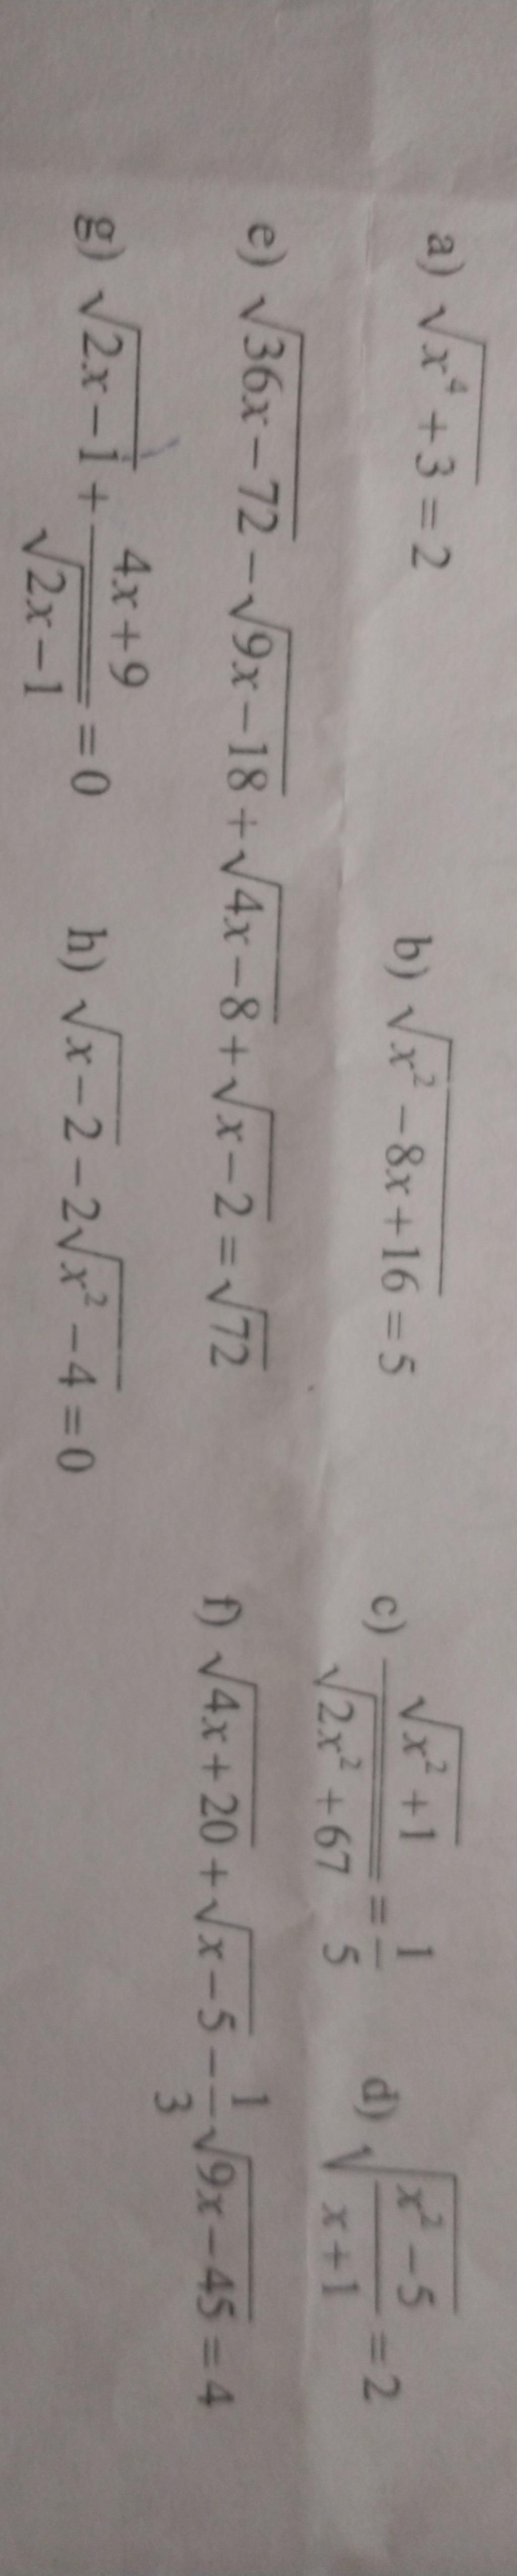 a) √(x⁴ + 3) = 2 b) √(x² − 8x + 16) = 5 c) √(x² + 1)/√(2x² + 67) = 1/5 d) √((x² − 5)/(x + 1)) = 2
e) √(36x − 72) − √(9x − 18) + √(4x − 8) + √(x − 2) = √72 f) √(4x + 20) + √(x − 5) − 1/3 √(9x − 45) = 4
g) √(2x − 1) + (4x + 9)/√(2x − 1) = 0 h) √(x − 2) − 2√(x² − 4) = 0